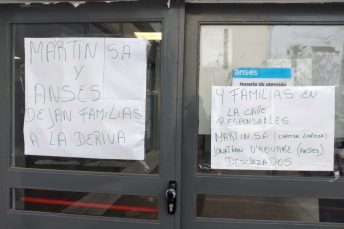 MARTIN SA
Y
ANSES
DEJAN FAMILIAS
A LA DERIVA
anses
Horario de atención
4 FAMILIAS EN
LA CALLE
RESPONSABLES
MARTIN SA (EMPRESA LIMPIEZA)
JONATHAN D'ROVARE (ANSES)
DESCLAZADOS